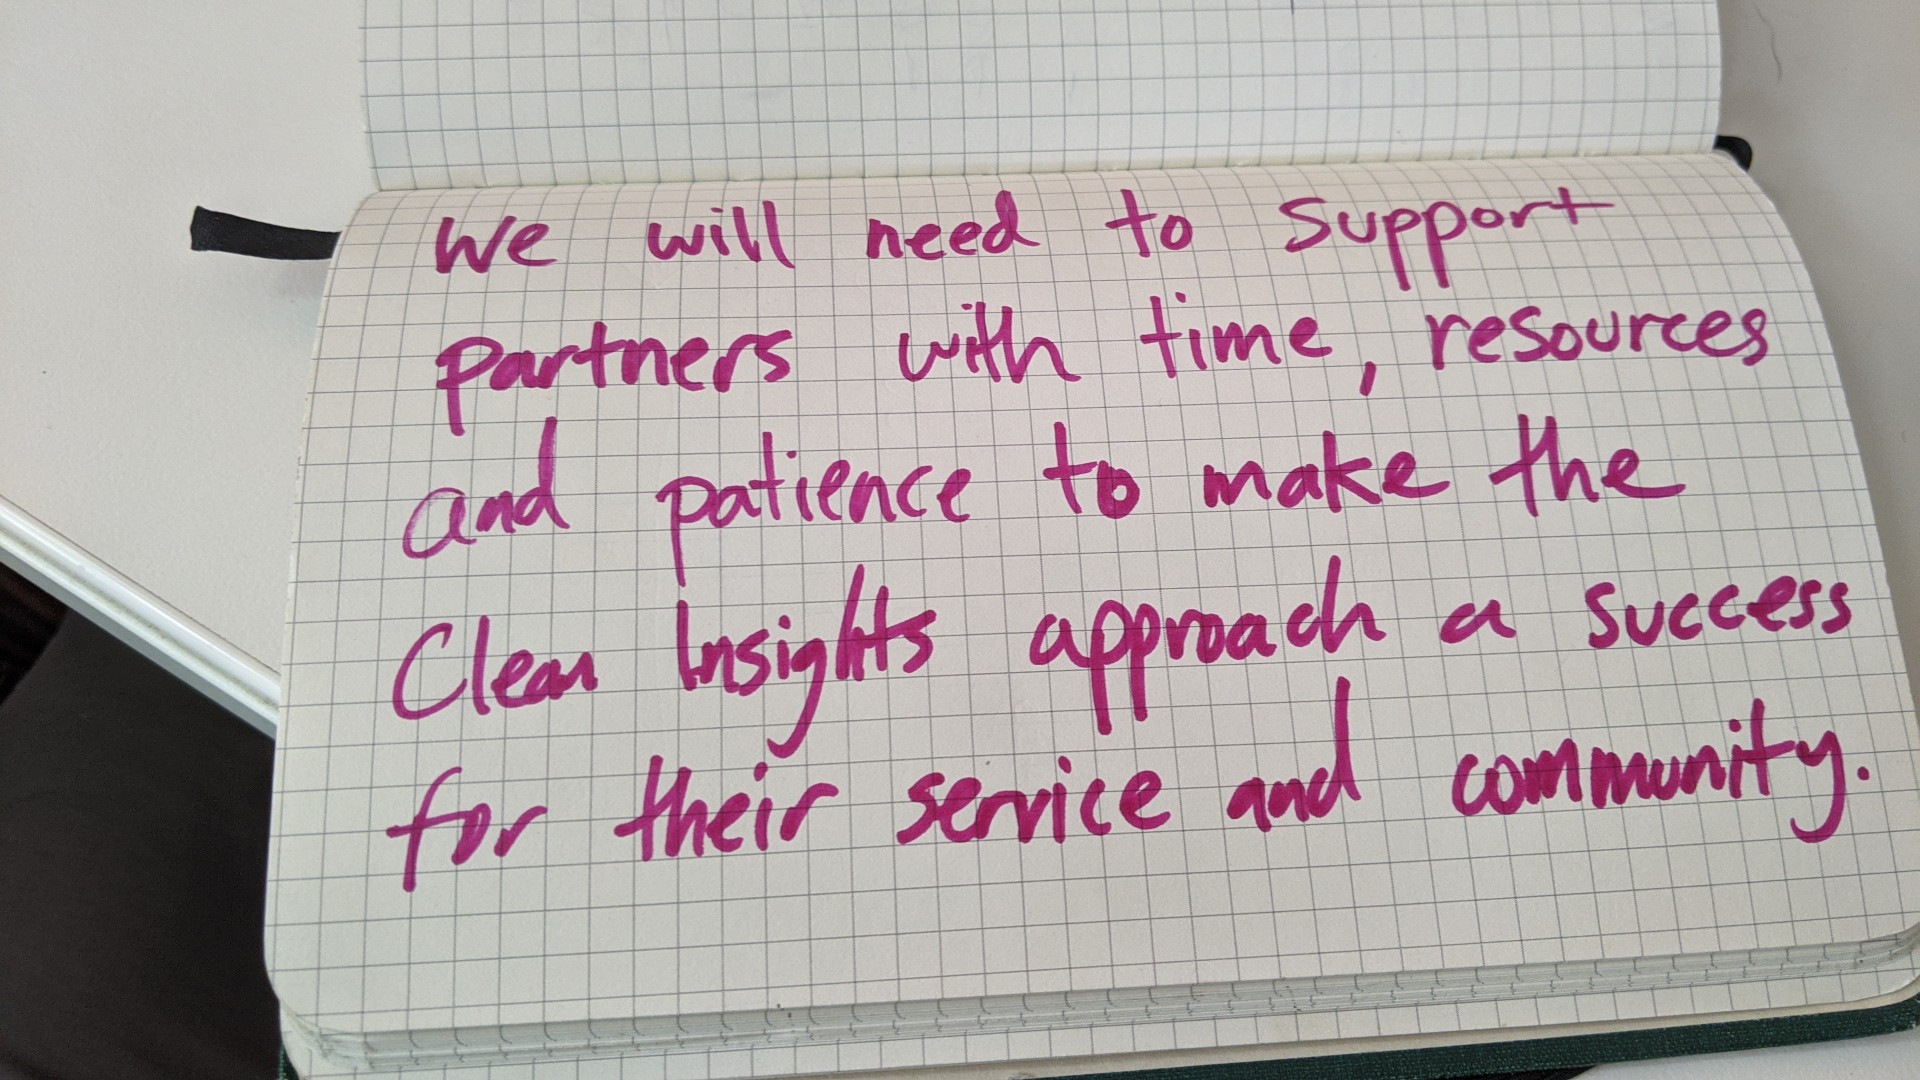 We will need to support
partners with time, resources
and patience to make the
Clean Insights approach a success
for their service and community.